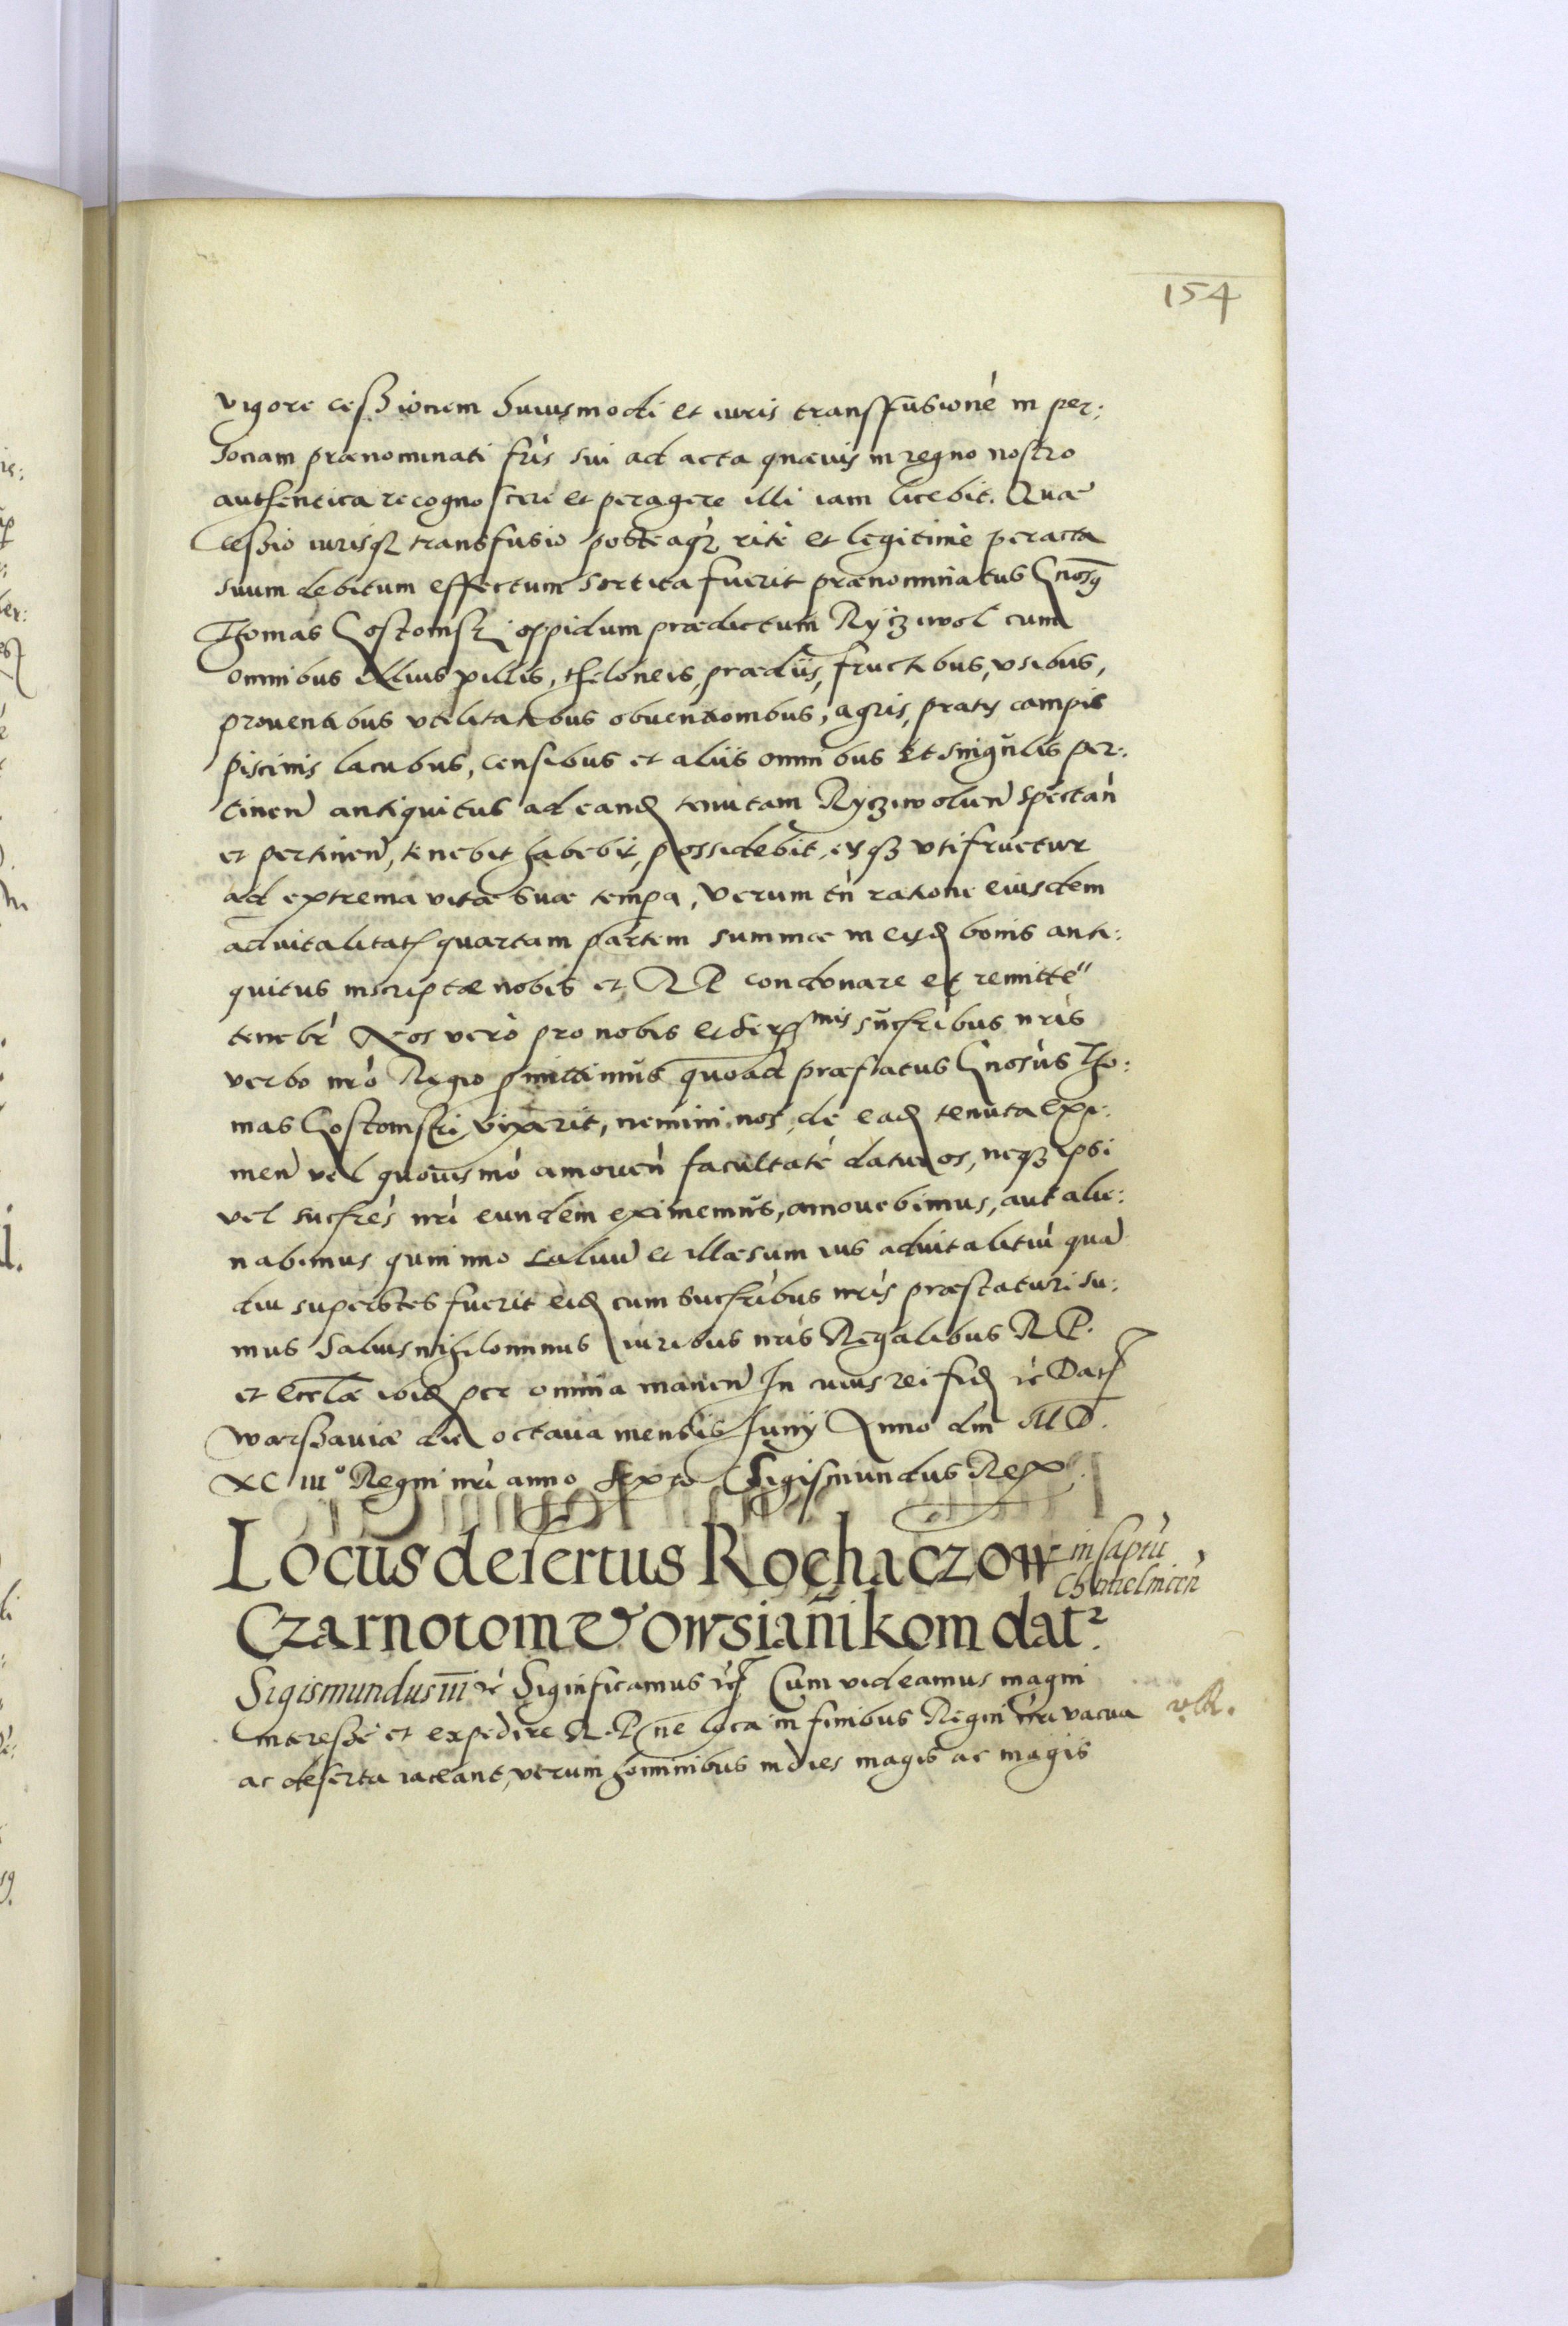 154
vigore cessionem huiusmodi et iuris transfusionē in per:
sonam prænominati frīs sui ad acta quævis in regno nostro
authentica recognoscere et peragere illi iam licebit. Quæ
cessio iurisqʒ transfusio posteaqʒ rite et legitimè peracta
suum debitum effectum sortita fuerit prænominatus Gnosꝫ
Thomas Gostomskj oppidum prædictum Ryczywol cum
omnibus illius villis, theloneis, prædiis, fructibus, vsibus,
prouentibus vtilitatibus obuentionibus, agris, pratis campis
piscinis lacubus, censibus et aliis omnibus et singulis per:
tinen̄ antiquitus ad eanđ tenutam Ryczywolien̄ spectan̄
et pertinen̄, tenebit habebit, possidebit, eisqʒ vtifruetur
ad extrema vitæ suæ tempa, Verum tn̄ ratione eiusdem
aduitalitatꝭ quartam partem summæ in eisđ bonis anti:
quitus inscriptæ nobis et RP condonare et remitte
tenebr̄ Nos verò pro nobis et Ser^mis sucsrībus nrīs
verbo nrō Regio pmittimus quoad præfatus Gnosus Tho:
mas Gostomski vixerit, nemini nos, de eađ tenuta exi:
men̄ vel quouis mō amouen̄ facultatē daturos, neqʒ ipsi
vel sucsrēs nrī eundem eximemus, amouebimus, aut alie:
nabimus quin imo saluū et illæsum ius aduitalitiū quā
diu superstes fuerit eiđ cum sucsrībus nrīs præstaturi su:
mus Saluis nihilominus iuribus nrīs Regalibus RP.
et Eccl̄æ ibiđ per omnia manen̄ In cuius rei fiđ rc Datꝭ
Warssauiæ die octaua mensis Junij Anno dni MD.
XC III° Regni nrī anno sexto Sigismundus Rex
Locus desertus Rochaczow in capitū
Chmielnicen̄
Czarnotom & Owsianikom dat2.
Sigismundus III rc Significamus rc Cum videamus magni
interesse et expedire R.P. ne loca in finibus Regni nrī vacua
ac deserta iaceant, verum hominibus indies magis ac magis